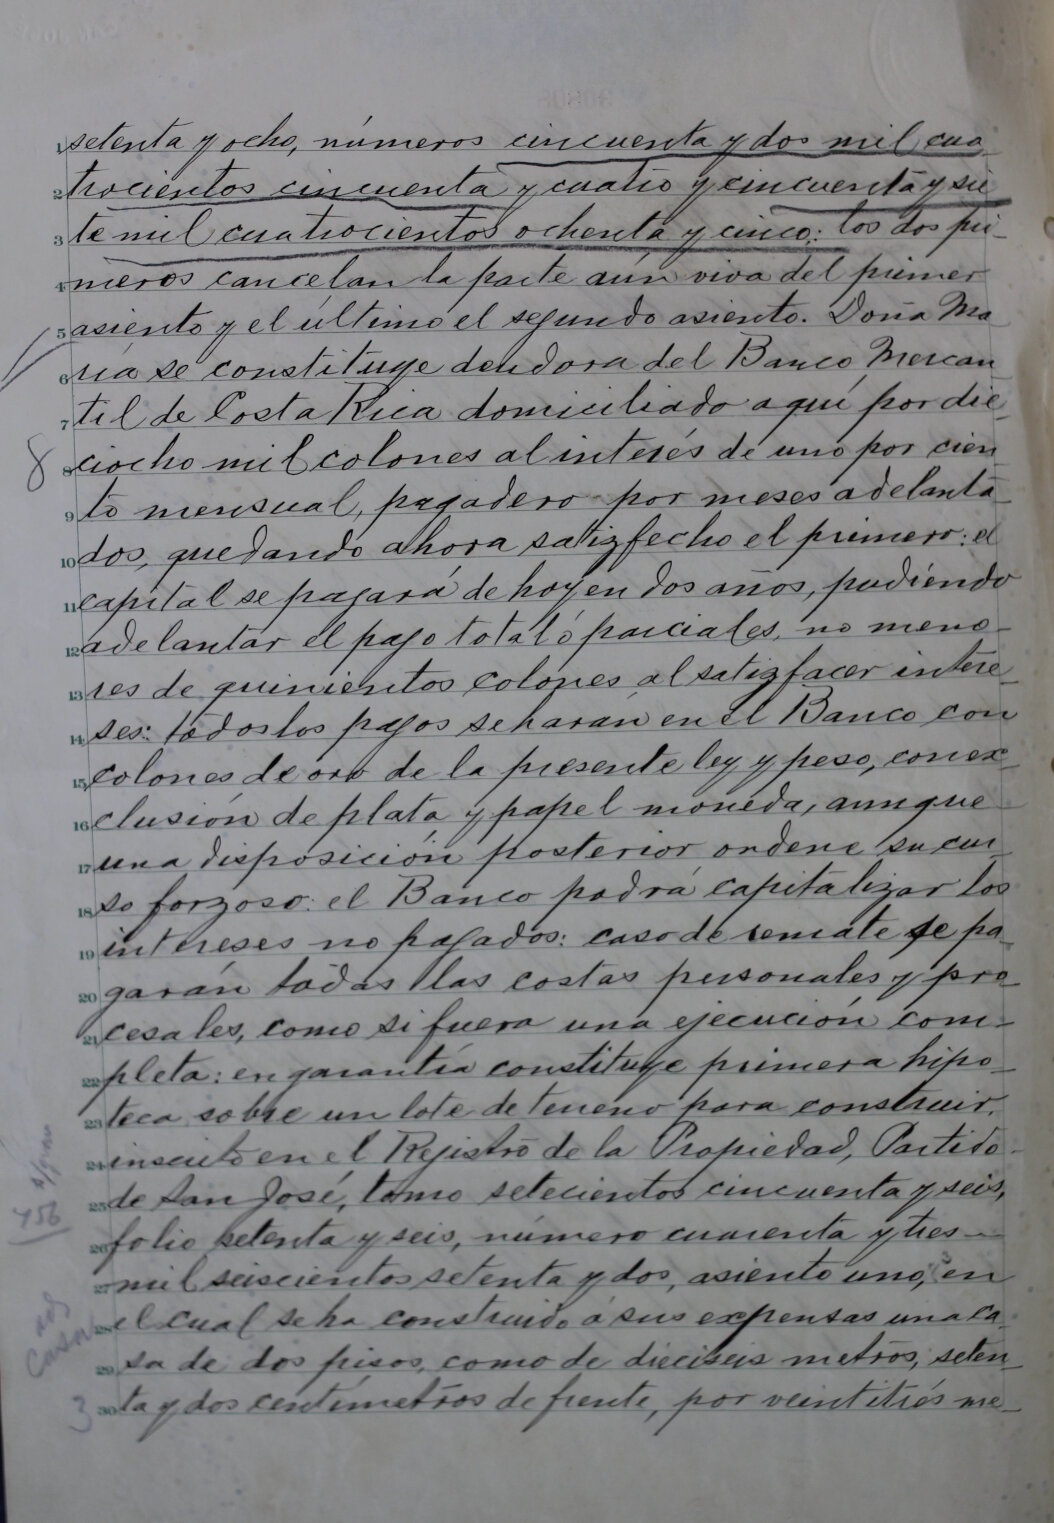 1 setenta y ocho, números cincuenta y dos mil cua
2 trocientos cincuenta y cuatro y cincuenta y sie
3 te mil cuatrocientos ochenta y cinco: los dos pri-
4 meros cancelan la parte aún viva del primer
5 asiento y el último el segundo asiento. Doña Ma
6 ría se constituye deudora del Banco Mercan
7 til de Costa Rica domiciliado aquí por die-
8 ciocho mil colones al interés de uno por cien
9 to mensual, pagadero por meses adelanta
10 dos, quedando ahora satizfecho el primero: el
11 capital se pagará de hoy en dos años, pudiendo
12 adelantar el pago total ó parciales, no meno-
13 res de quinientos colones al satizfacer intere-
14 ses: todos los pagos se harán en el Banco con
15 colones de oro de la presente ley y peso, con ex-
16 clusión de plata y papel moneda, aunque
17 una disposición posterior ordene su cur-
18 so forzoso: el Banco podrá capitalizar los
19 intereses no pagados: caso de remate se pa-
20 garán todas las costas personales y pro-
21 cesales, como si fuera una ejecución com-
22 pleta: en garantía constituye primera hipo-
23 teca sobre un lote de terreno para construir,
24 inscrito en el Registro de la Propiedad, Partido
25 de San José, tomo setecientos cincuenta y seis,
26 folio setenta y seis, número cuarenta y tres
27 mil seiscientos setenta y dos, asiento uno, en
28 el cual se ha construido á sus expensas una ca-
29 sa de dos pisos, como de dieciseis metros, seten-
30 ta y dos centímetros de frente, por veintitrés me-
8
756
casa
3